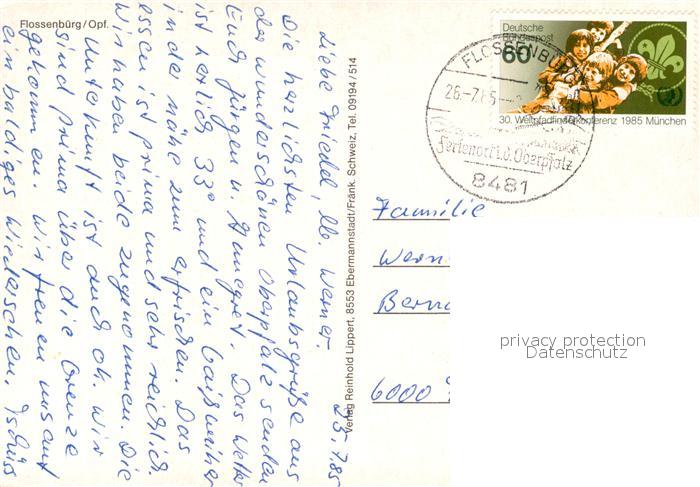 Flossenbürg/Opf.
25.7.85
Liebe Friedel, lb. Werner.
Die herzlichsten Urlaubsgrüße aus
der wunderschönen Oberpfalz senden
Euch Jürgen u. Annegret. Das Wetter
ist herrlich 33° und ein Gaisweiher
in der nähe zum erfrischen. Das
essen ist prima und sehr reichlich.
Wir haben beide zugenommen. Die
Unterkunft ist auch ok. Wir
sind prima über die Grenze
gekommen. Wir freuen uns auf
ein baldiges Wiedersehen. Tschüss
Verlag Reinhold Lippert, 8553 Ebermannstadt/Fränk. Schweiz, Tel. 09194/514
Deutsche
Bundespost
60
30. Weltpfadfinderkonferenz 1985 München
FLOSSENBÜRG
26.-7.85
Ferienort i.d. Oberpfalz
8481
Familie
Wern
Berna
6000
privacy protection
Datenschutz